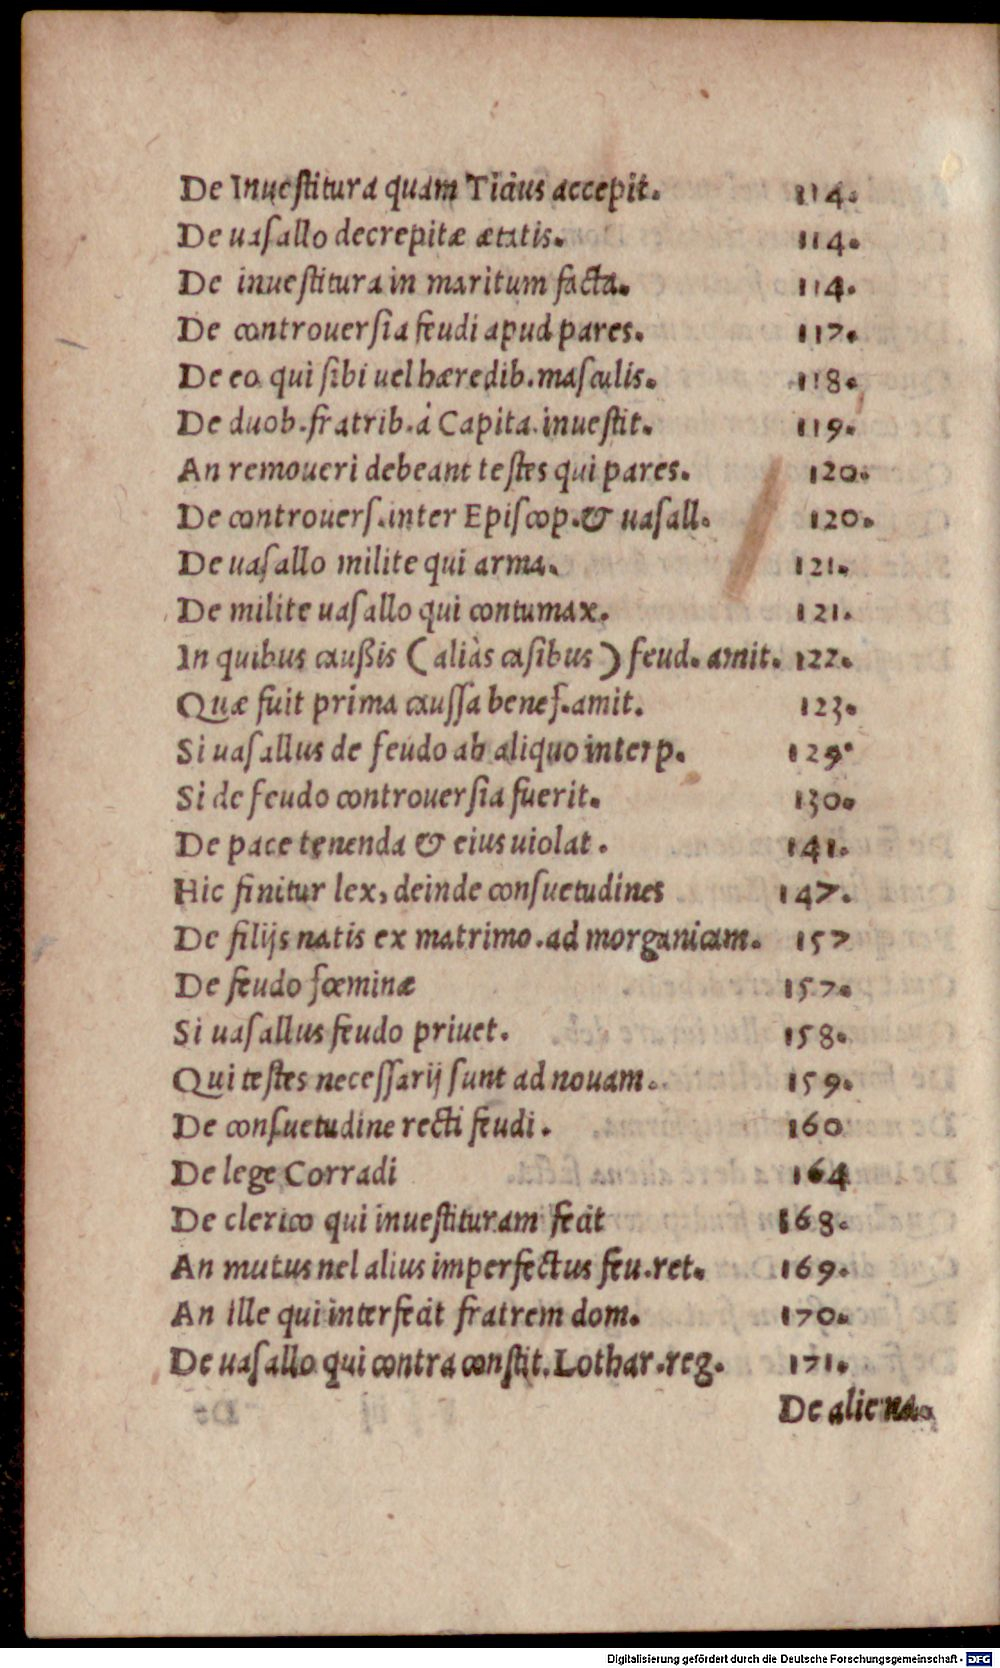 De Inueſtitura quam Titius accepit. 114.
De uaſallo decrepitæ ætatis. 114.
De inueſtitura in maritum facta. 114.
De controuerſia feudi apud pares. 117.
De eo qui ſibi uel hæredib. maſculis. 118.
De duob. fratrib. à Capita. inueſtit. 119.
An remoueri debeant teſtes qui pares. 120.
De controuerſ. inter Epiſcop. & uaſall. 120.
De uaſallo milite qui arma. 121.
De milite uaſallo qui contumax. 121.
In quibus cauſsis (aliàs caſibus) feud. amit. 122.
Quæ fuit prima cauſſa beneſ. amit. 123.
Si uaſallus de feudo ab aliquo interp. 129.
Si de feudo controuerſia fuerit. 130.
De pace tenenda & eius uiolat. 141.
Hic finitur lex, deinde conſuetudines 147.
De filijs natis ex matrimo. ad morganicam. 157
De feudo fœminæ 157.
Si uaſallus feudo priuet. 158.
Qui teſtes neceſſarij ſunt ad nouam. 159.
De conſuetudine recti feudi. 160
De lege Corradi 164
De clerico qui inueſtituram fecit 168.
An mutus nel alius imperfectus feu. ret. 169.
An ille qui interfecit fratrem dom. 170.
De uaſallo qui contra conſtit. Lothar. reg. 171.
De aliena.
Digitalisierung gefördert durch die Deutsche Forschungsgemeinschaft - DFG